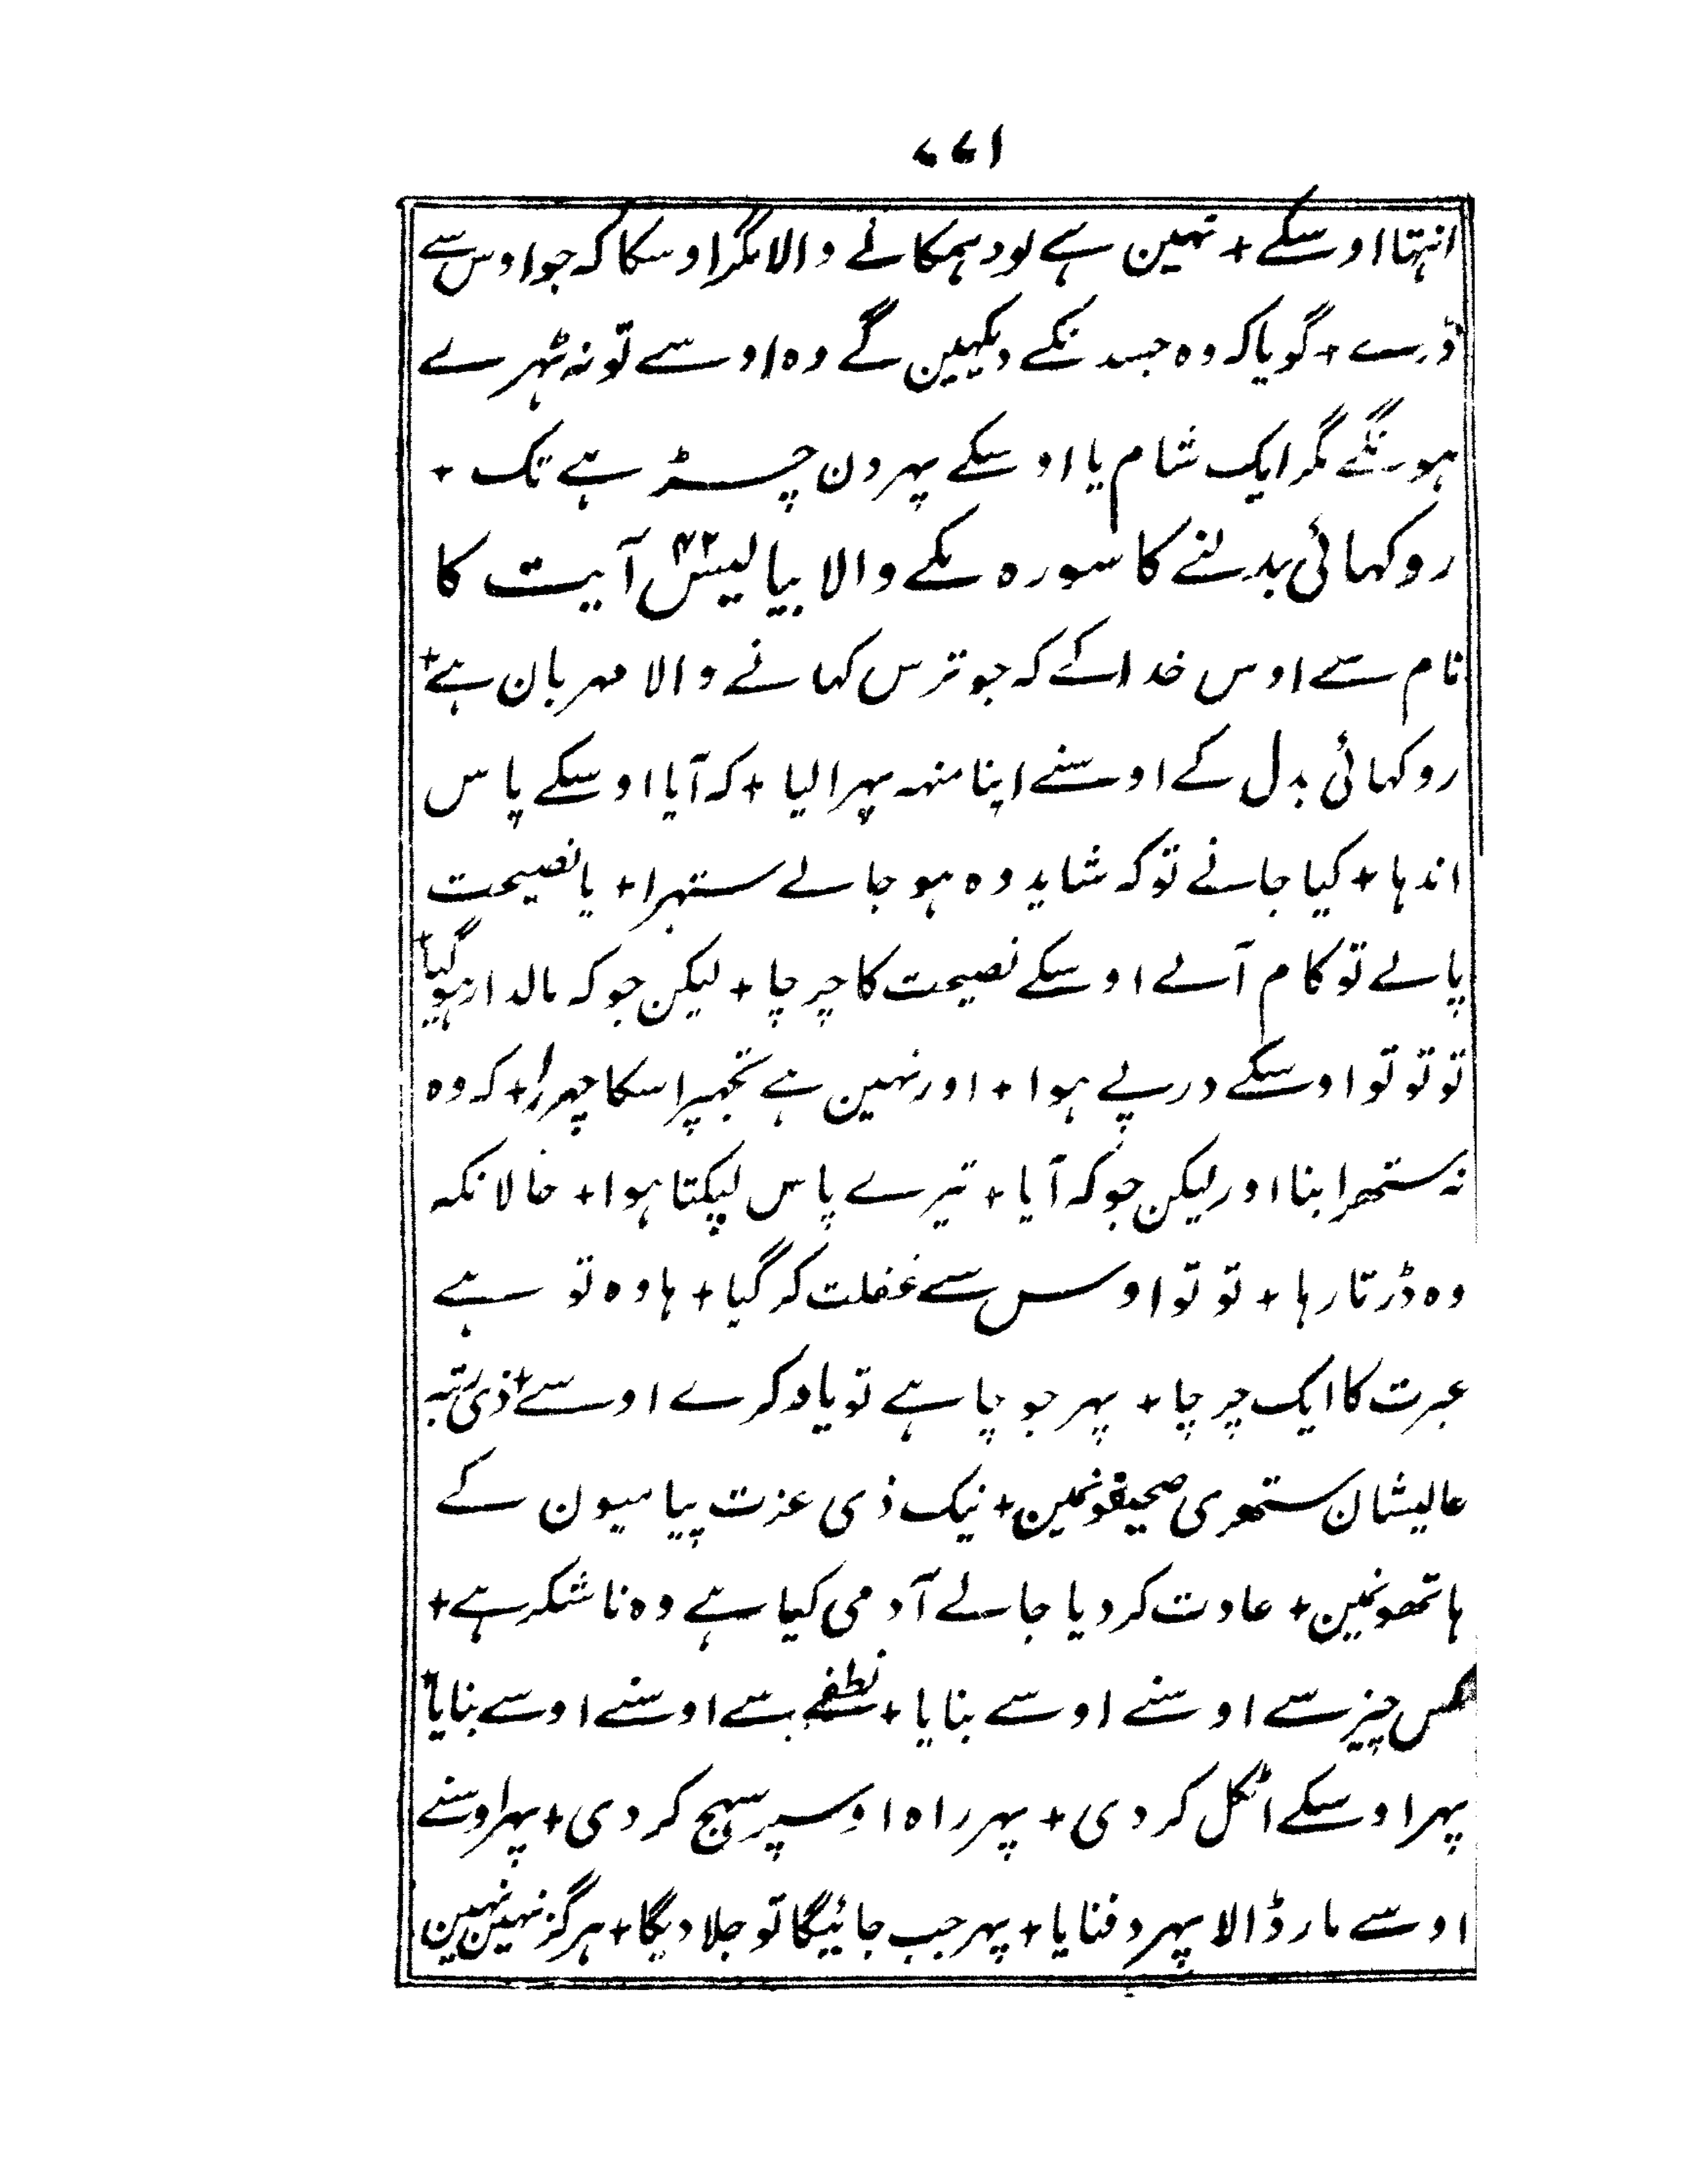 ۷۷۱
انتہا اوسکے + نہین ہے تو دہمکانے والا مگر اوسکا کہ جو اوس سے
ڈرے + گویا کہ وہ جسدنکے دیکہین گے وہ اوسے تو نہ ٹہرے
ہونگے مگر ایک شام یا اوسکے پہر دن چڑہے تک +
روکہائی بدلنے کا سورہ مکے والا بیالیس ۴۲ آیت کا
نام سے اوس خدا کے کہ جو ترس کہانے والا مہربان ہے +
روکہائی بدل کے اوسنے اپنا منہہ پہرا لیا + کہ آیا اوسکے پاس
اندہا + کیا جانے تو کہ شاید وہ ہو جائے ستہرا + یا نصیحت
پائے تو کام آئے اوسکے نصیحت کا چرچا + لیکن جو کہ مالدار ہو گیا +
تو تو تو اوسکے درپے ہوا + اور نہین ہے تجہپر اسکا چہرا + کہ وہ
نہ ستھرا بنا اور لیکن جو کہ آیا + تیرے پاس لپکتا ہوا + حالانکہ
وہ ڈرتا رہا + تو تو اوس سے غفلت کر گیا + ہا وہ تو ہے
عبرت کا ایک چرچا + پہر جو چاہے تو یاد کرے اوسے + ذی رتبہ
عالیشان ستھری صحیفونمین + نیک ذی عزت پیامیون کے
ہاتھونمین + عادت کر دیا جائے آدمی کیا ہے وہ ناشکر ہے +
کس چیز سے اوسنے اوسے بنایا + نطفے سے اوسنے اوسے بنایا +
پہر اوسکے اٹکل کر دی + پہر راہ اوسپر سہج کر دی + پہر اوسنے
اوسے مار ڈالا پہر دفنایا + پہر جب جائیگا تو جلا دیگا + ہرگز نہین نہین